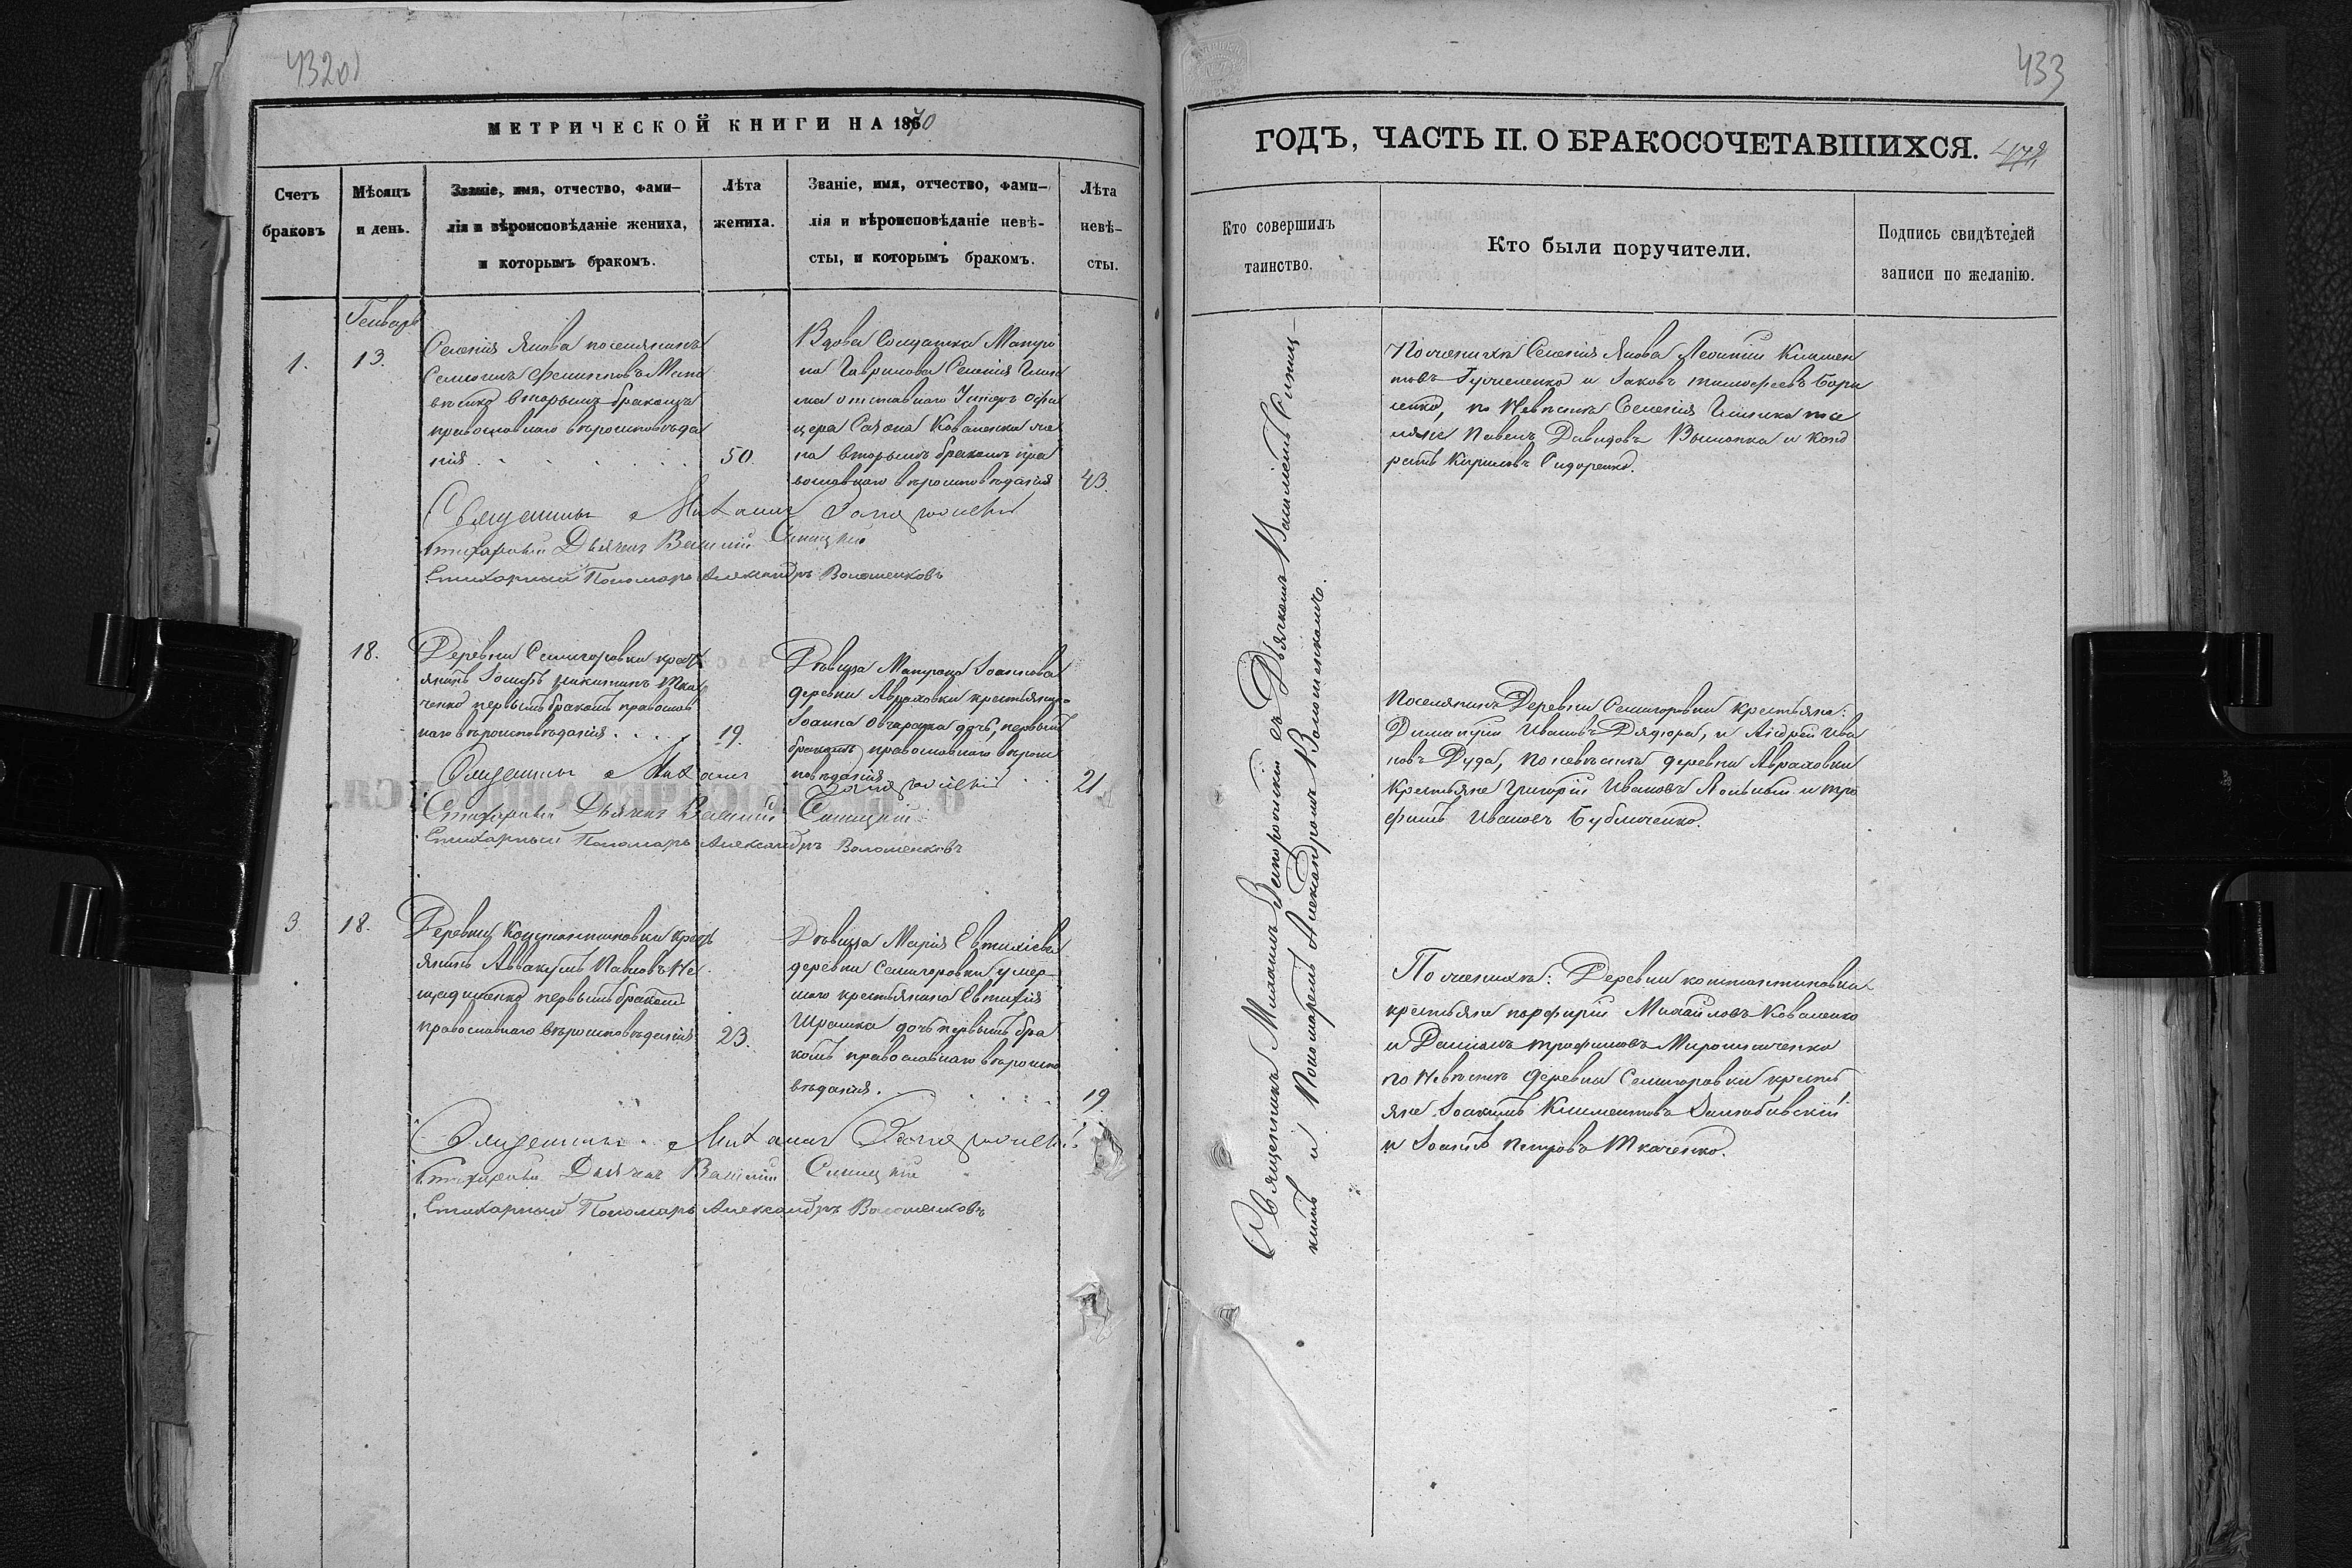 432об
МЕТРИЧЕСКОЙ КНИГИ НА 1870
Счетъ
браковъ
Мѣсяцъ
и день.
Званіе, имя, отчество, фами-
лія и вѣроисповѣданіе жениха,
и которымъ бракомъ.
Лѣта
жениха.
Званіе, имя, отчество, фами-
лія и вѣроисповѣданіе невѣ-
сты, и которымъ бракомъ.
Лѣта
невѣ-
сты.
Генварь
1.
13.
Селенія Янова поселянинъ
вторымъ бракомъ
православнаго вѣроисповѣда
нія
50.
Вдова Солдатка Матро
на Гаврилова Селенія
отставнаго Унтеръ Офи
цера Коваленка же
на вторымъ бракомъ пра
вославнаго вѣроисповѣданія
43.
Священникъ Михаилъ Запорожскій
Стихарный Дьячекъ Василій Синицкій
Стихарный Пономарь Александръ Волошенковъ
18.
Деревни Семигоровки крест
янинъ Іосифъ Никитинъ Тка
ченко первымъ бракомъ православ
наго вѣроисповѣданія
19.
Дѣвица Матрона Іоаннова
деревни Авраховки крестьянина
Іоанна дочь, первымъ
бракомъ православнаго вѣроис
повѣданія
21
Священникъ Михаилъ Запорожскій
Стихарный Дьячекъ Василій Синицкій
Стихарный Пономарь Александръ Волошенковъ
3.
18.
Деревни Константиновки крест
янинъ Аввакумъ Павловъ Не
первымъ бракомъ
православнаго вѣроисповѣданія
23.
Дѣвица Марія Евтихіева
деревни Семигоровки умер-
шаго крестьянина Евтихія
дочь первымъ бра
комъ православнаго вѣроиспо
вѣданія.
19
Священникъ Михаилъ Запорожскій
Стихарный Дьячекъ Василій Синицкій
Стихарный Пономарь Александръ Волошенковъ
433
ГОДЪ, ЧАСТЬ II. О БРАКОСОЧЕТАВШИХСЯ.
Кто совершилъ
таинство.
Кто были поручители.
Подпись свидѣтелей
записи по желанію.
Священникъ Михаилъ Запорожскій съ Дьячкомъ Василіемъ Синиц-
кимъ и Пономаремъ Александромъ Волошенкомъ.
По женихѣ Селенія Янова Леонтій Климен
товъ и Іаковъ Тимофеевъ Бори
сенко, по Невѣстѣ Селенія
Павелъ Давидовъ и Конд
ратъ Кириловъ Сидоренко.
Поселянинъ Деревни Семигоровки крестьяне:
Димитрій Ивановъ и Андрей Ива
новъ Дуда, по невѣстѣ деревни Авраховки
крестьяне Григорій Ивановъ и Тро
фимъ Ивановъ Бубличенко.
По женихѣ: Деревни Константиновки
крестьяне Порфирій Михайловъ Коваленко
и Даніилъ Трофимовъ Мирошниченко
по Невѣстѣ деревни Семигоровки кресть
яне Іоакимъ Климентовъ
и Іоаннъ Петровъ Ткаченко.